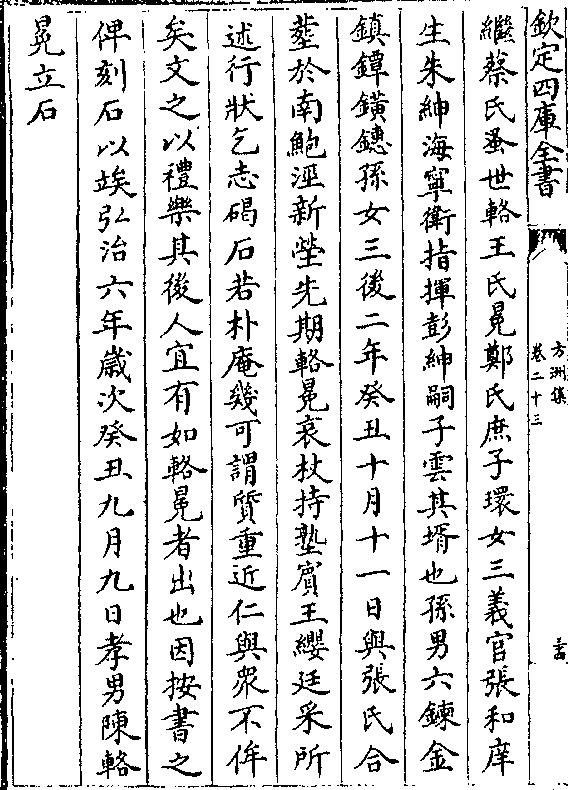 欽定四庫全書
方洲集
卷二十三
繼蔡氏蚤世輅王氏冕鄭氏庶子環女三義官張和庠
生朱紳海寧衛指揮彭紳嗣子雲其壻也孫男六鍊金
鎮鐔鐄鏸孫女三後二年癸丑十月十一日與張氏合
塟於南鮑涇新塋先期輅冕哀杖持塾賓王纓廷采所
述行狀乞志碣石若朴庵幾可謂質重近仁與衆不侔
矣文之以禮樂其後人宜有如輅冕者出也因按書之
俾刻石以竢弘治六年歲次癸丑九月九日孝男陳輅
冕立石